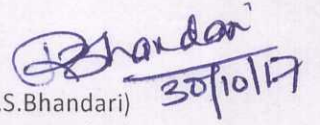 Bhandari
30/10/17
.S.Bhandari)